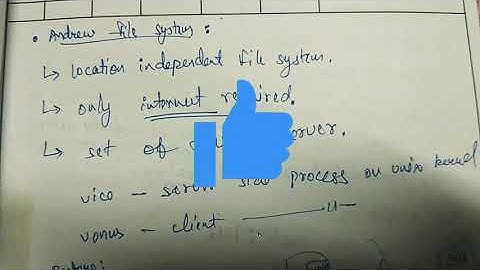 • Andrew file system :
↳ location independent file system.
↳ only internet required.
↳ set of server.
vice – server side process on unix kernel
venus – client —— 〃 —